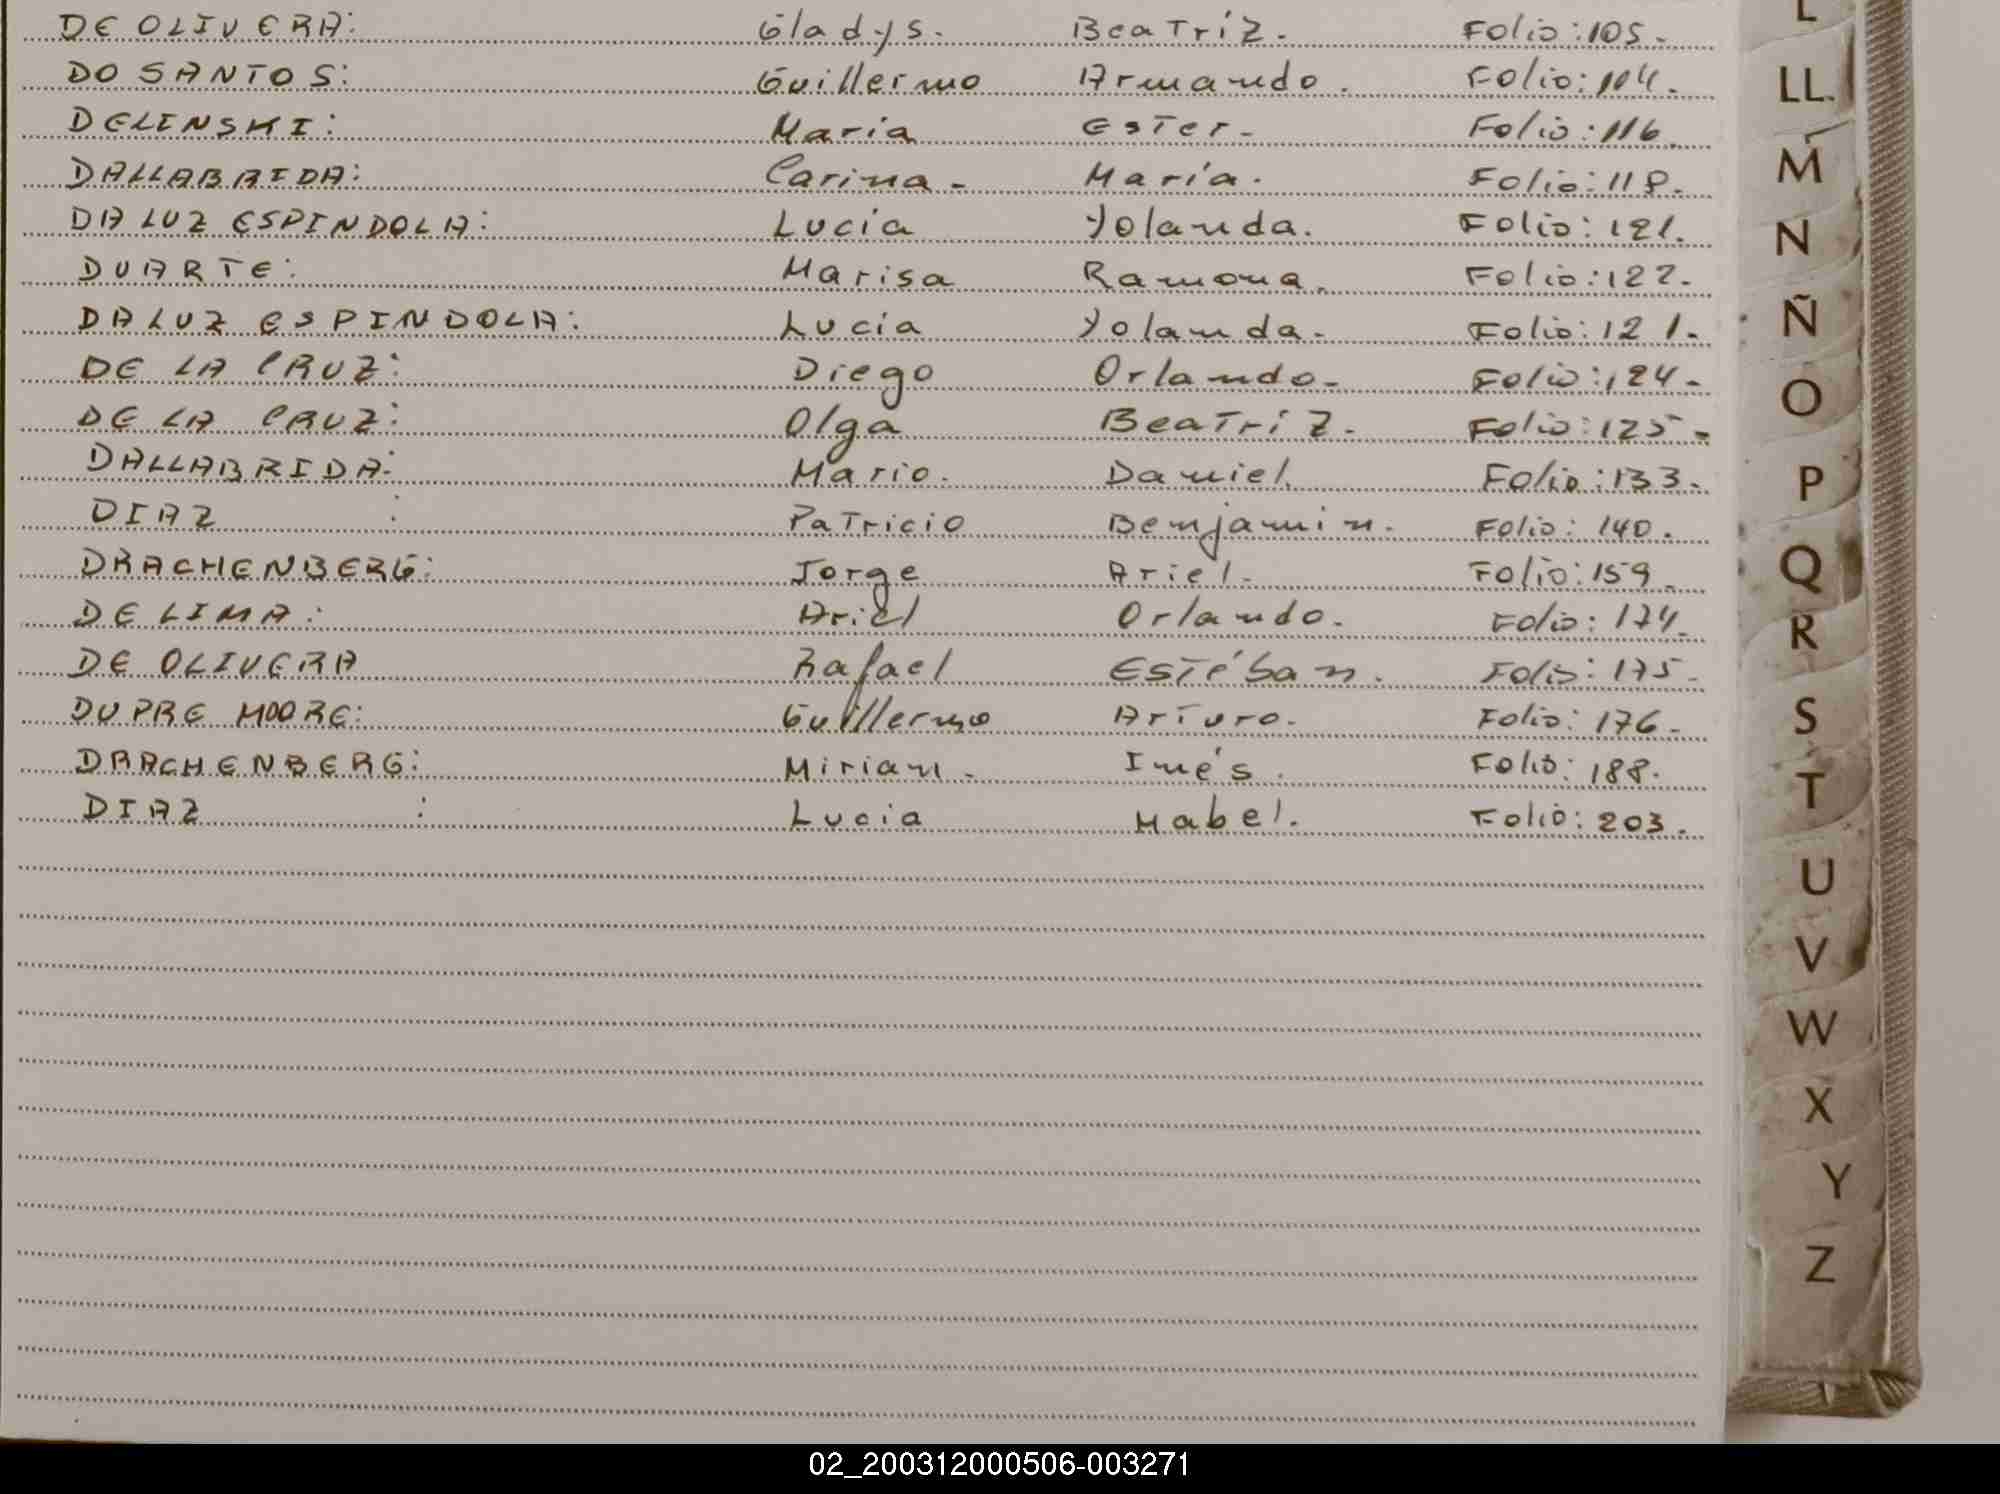 DE OLIVERA: Gladys. Beatríz. Folio: 105.
DO SANTOS: Guillermo Armando. Folio: 104.
DELINSKI: María Ester. Folio: 116.
DALLABRIDA: Carina. María. Folio: 118.
DA LUZ ESPINDOLA: Lucía Yolanda. Folio: 121.
DUARTE: Marisa Ramona. Folio: 122.
DA LUZ ESPINDOLA: Lucía Yolanda. Folio: 121.
DE LA CRUZ: Diego Orlando. Folio: 124.
DE LA CRUZ: Olga Beatríz. Folio: 125.
DALLABRIDA: Mario. Daniel. Folio: 133.
DIAZ : Patricio Benjamin. Folio: 140.
DRACHENBERG: Jorge Ariel. Folio: 159.
DE LIMA: Ariel Orlando. Folio: 174.
DE OLIVERA Rafael Estéban. Folio: 175.
DUPRE MOORE: Guillermo Arturo. Folio: 176.
DRACHENBERG: Mirian. Inés. Folio: 188.
DIAZ : Lucia Mabel. Folio: 203.
L
LL
M
N
Ñ
O
P
Q
R
S
T
U
V
W
X
Y
Z
02_200312000506-003271